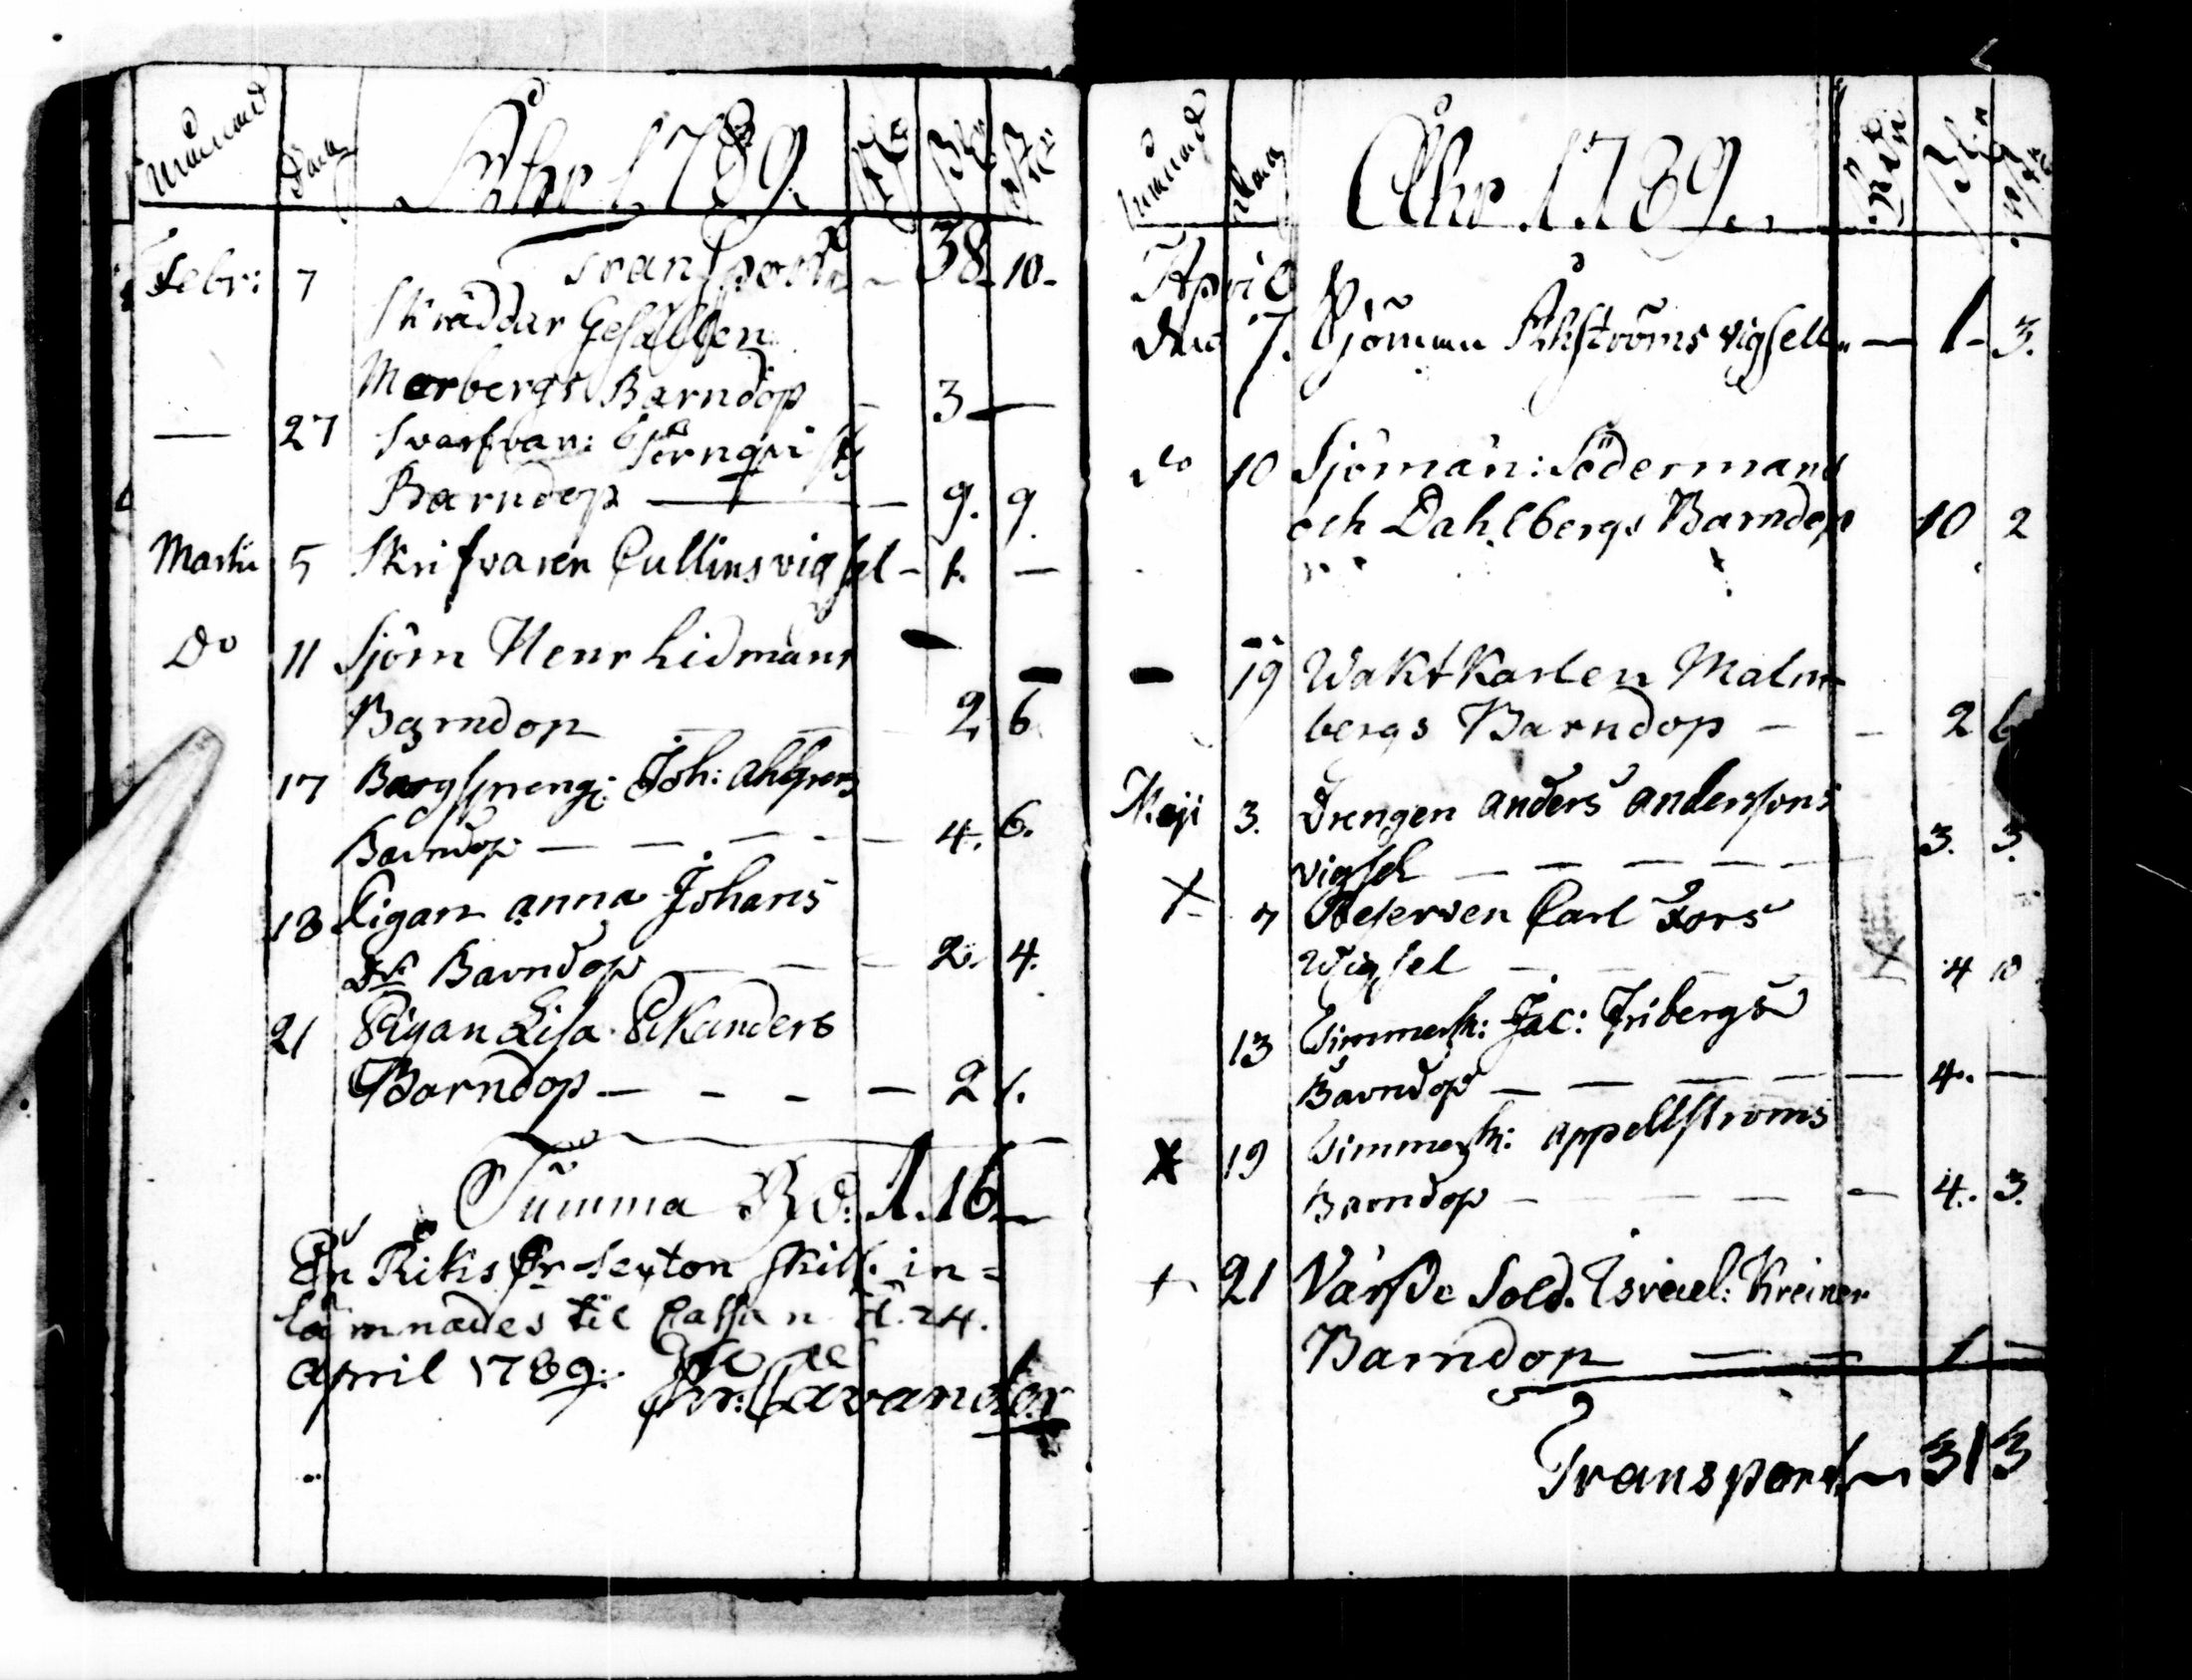 Månad Dag Åhr 1789. Rd sk
Transport 38. 10.
Febr: 7 Skräddar Gesällen
Morbergs Barndop - 3 —
— 27 Svarfvar: Törnqvists
Barndop — 9. 9.
Martii 5 Skrifvaren Cullins vigsel - 1. —
Do 11 Sjöm Henr Lidmans
Barndop — 2 6
17 Joh: Ahlgrens
Barndop — — — 4. 6.
18 Pigan Anna Johans
Dr Barndop — — 2. 4.
21 Pigan Lisa Ekanders
Barndop — - - — 2 1.
Summa Rd: 1. 16 —
En Riks Dr Sexton skill. in=
lämnades til Cassan d. 24.
April 1789.
Cavander
Månad Dag Åhr 1789.
April
7. Sjöman Ekströms vigsell — 1 - 3.
do 10 Sjömän: Södermans
och Dahlbergs Barndop 10 2
— 19 Wakt Karlen Malm-
bergs Barndop — - 2 6
Maji 3. Drengen Anders Anderssons
vigsel — — — — 3. 3.
+ 7 Carl Fors
Wigsel — 4 10
13 Timmerk: Jac: Fribergs
Barndop — — — — 4. —
X 19 Timmerk: Appellströms
Barndop — — — 4. 3.
+ 21 Sold. Isreael: Kreiner
Barndop — — 1 —
Transport 31 3